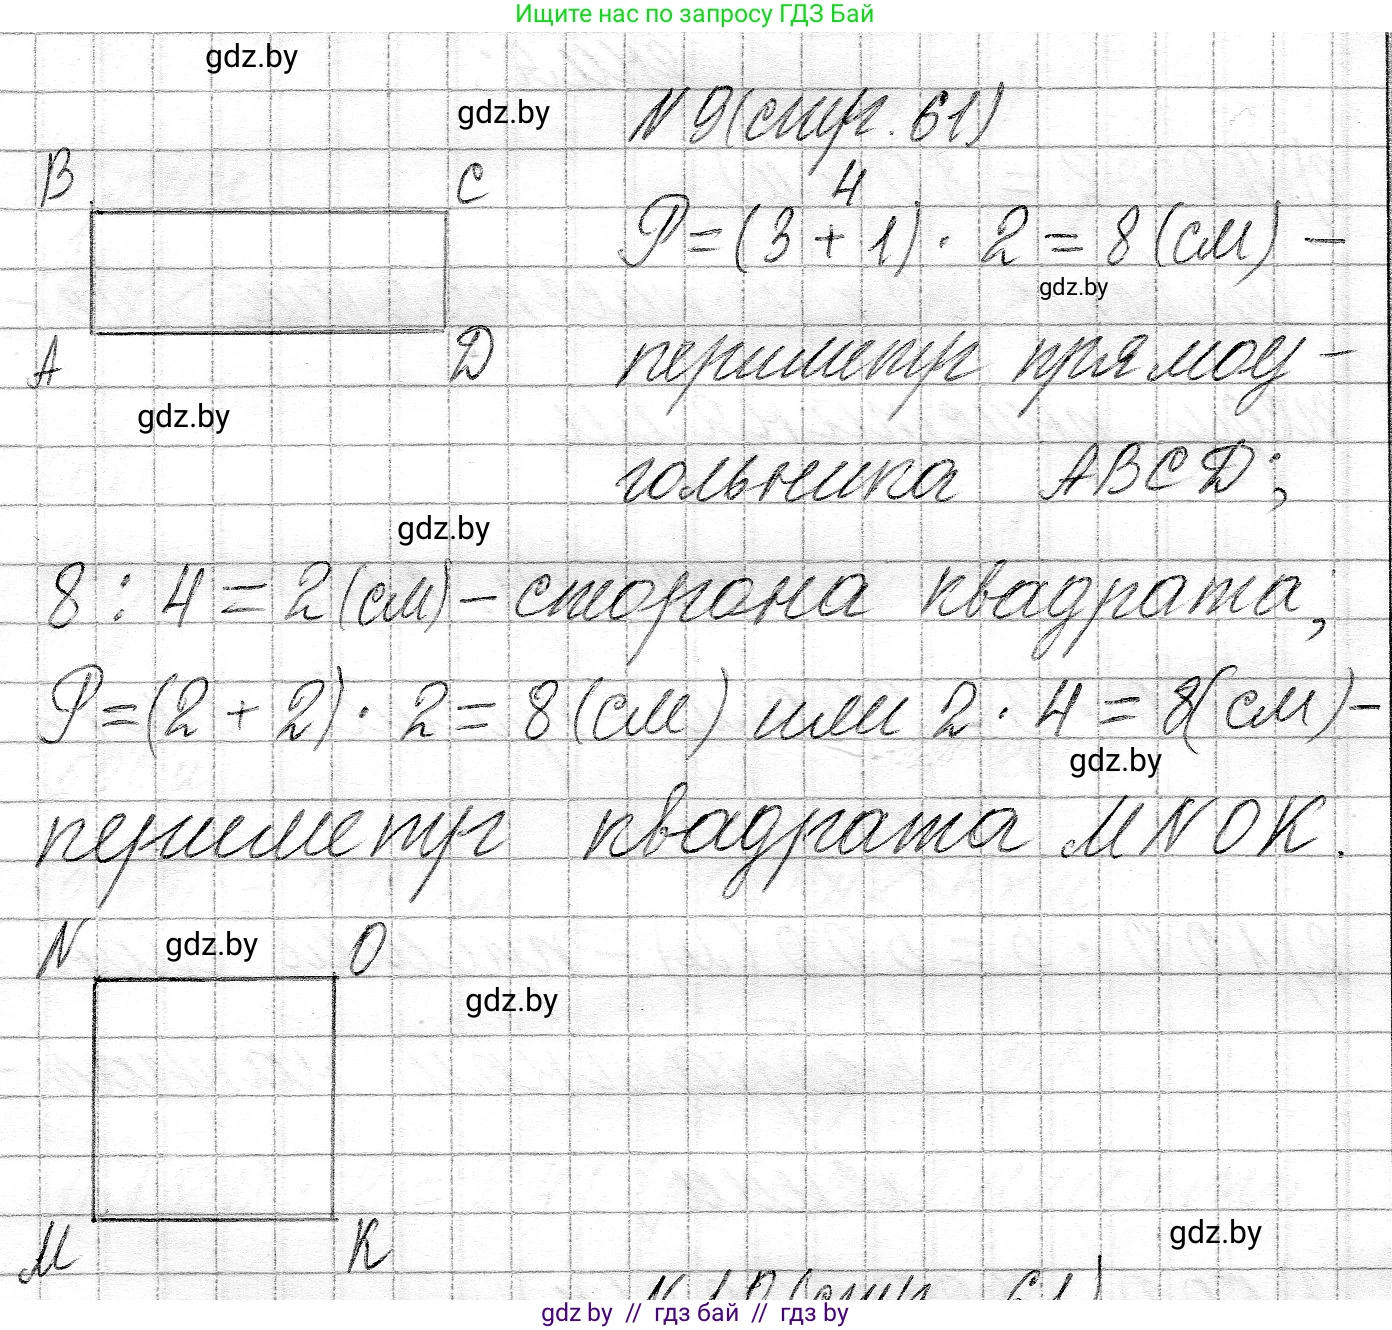 Ищите нас по запросу ГДЗ Бай
gdz.by
gdz.by
N 9 (стр. 61)
B C
4
P = (3 + 1) · 2 = 8 (см) –
gdz.by
A D
периметр прямоу-
gdz.by
гольника ABCD;
gdz.by
8 : 4 = 2 (см) – сторона квадрата;
P = (2 + 2) · 2 = 8 (см) или 2 · 4 = 8 (см) –
gdz.by
периметр квадрата MNOK.
N gdz.by O
gdz.by
gdz.by
M K
N 10 (стр. 61)
gdz.by // гдз бай // гдз by